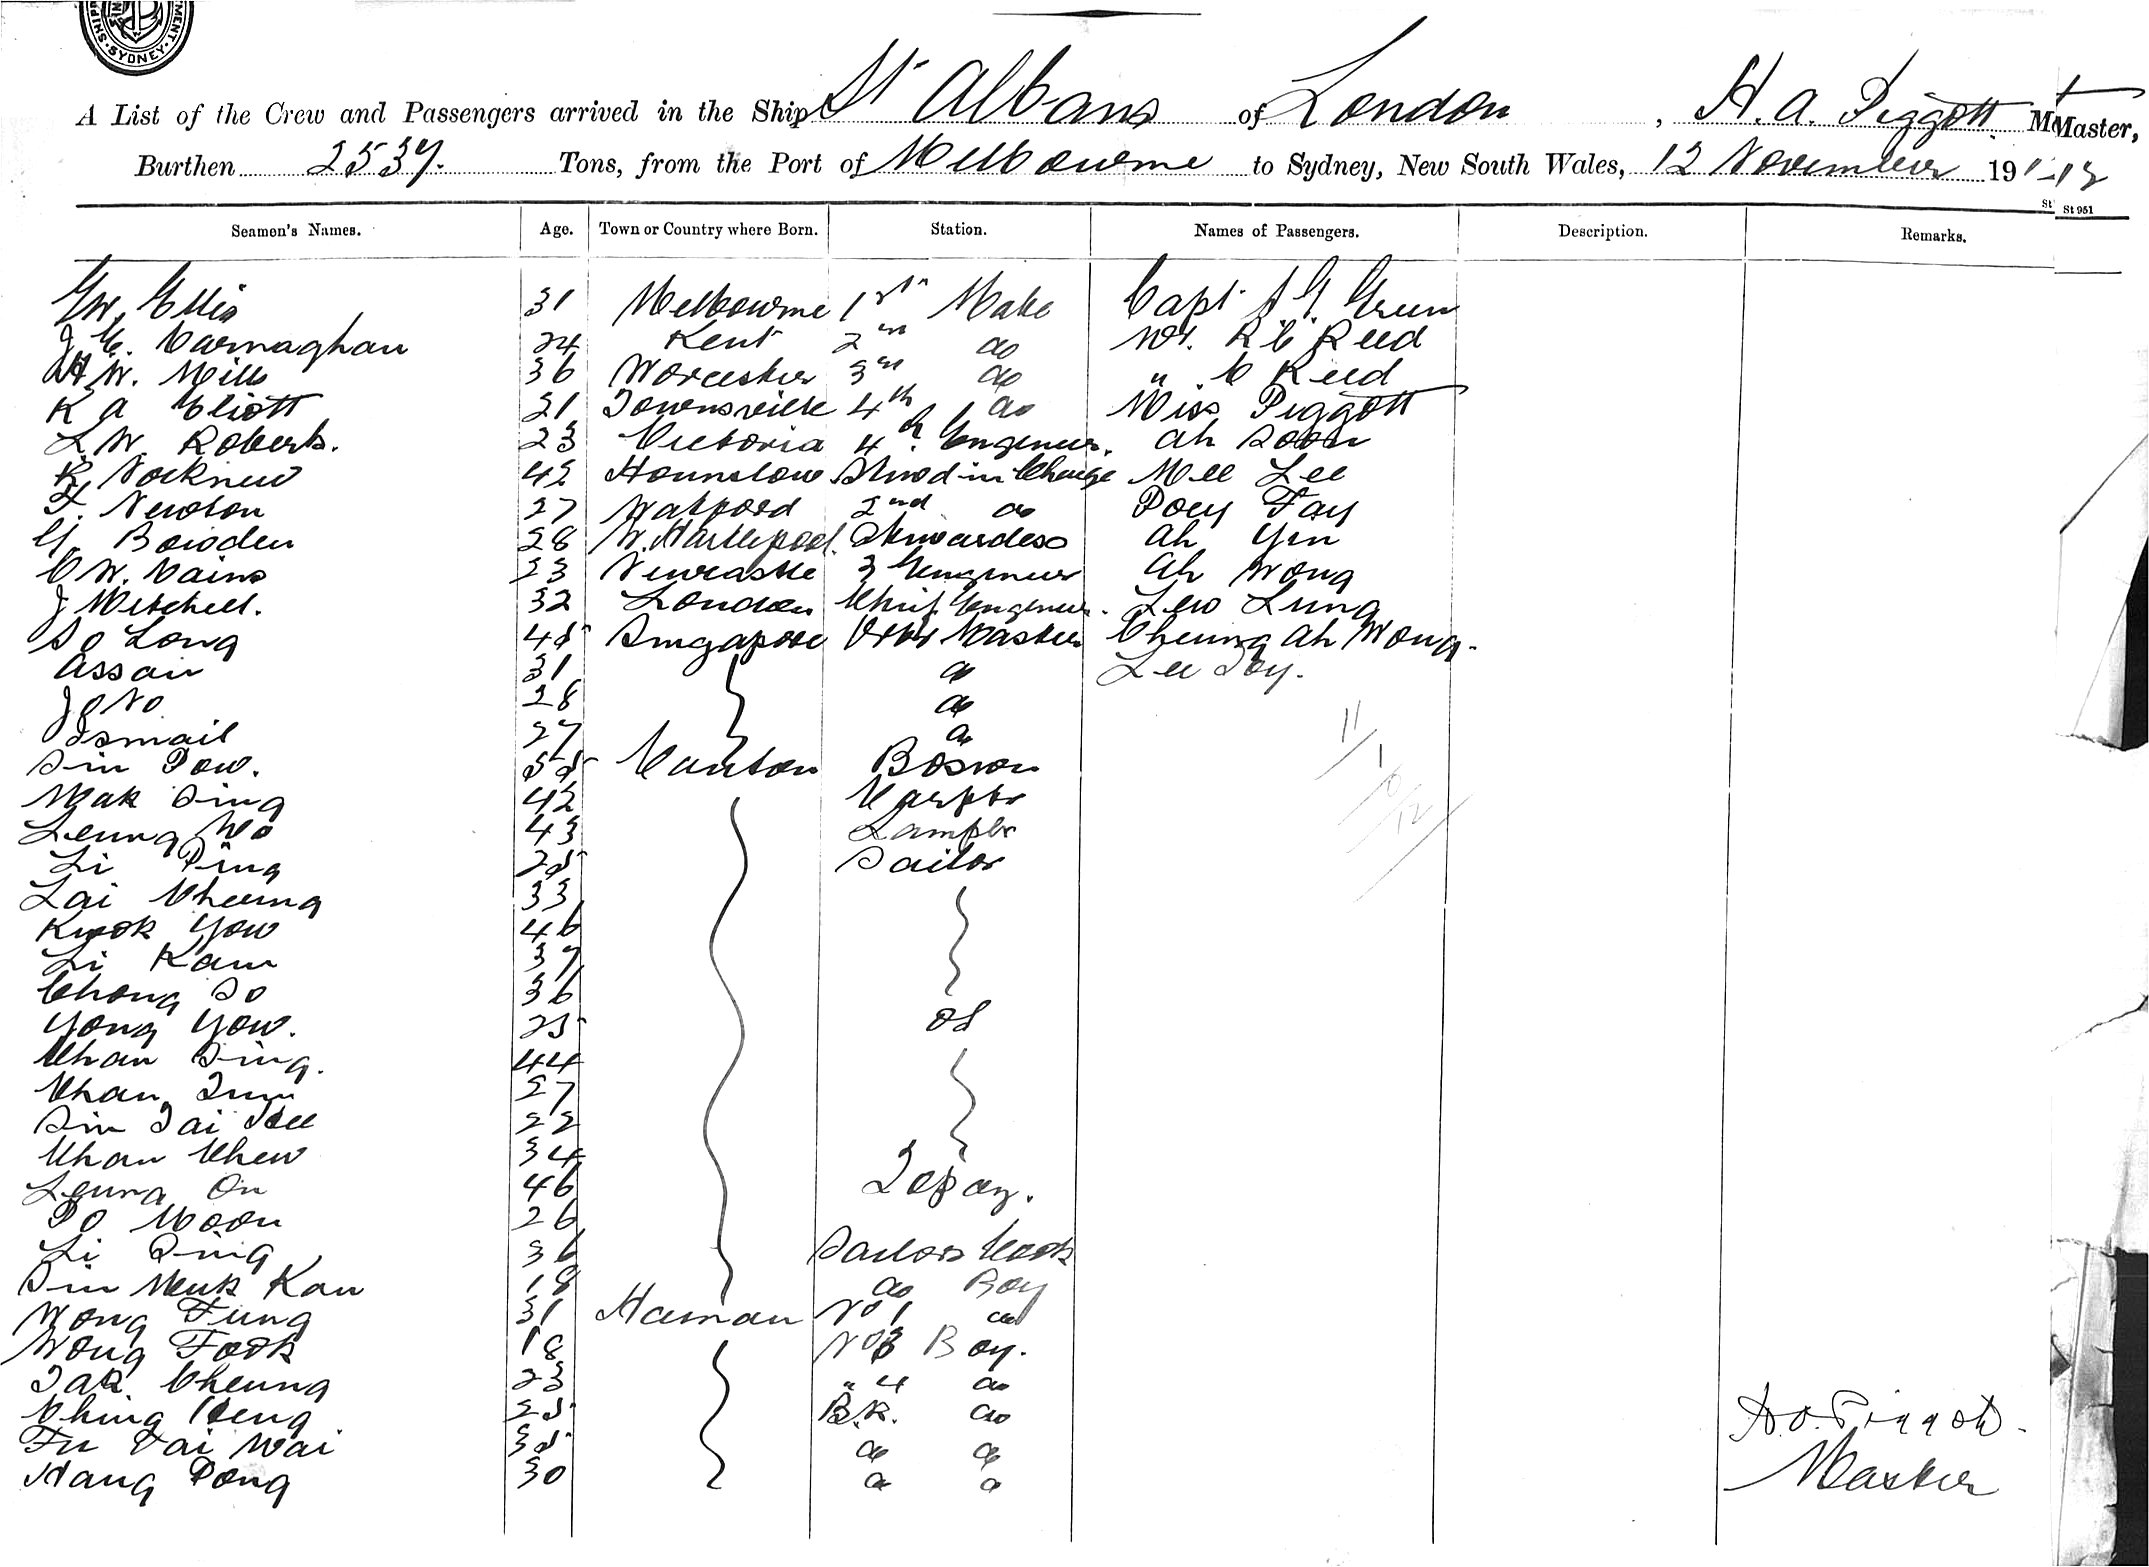 SYDNEY
A List of the Crew and Passengers arrived in the Ship St Albans of London, H. A. Piggott Master,
Burthen 2537. Tons, from the Port of Melbourne to Sydney, New South Wales, 12 November 191
St 951
Seamen's Names. Age. Town or Country where Born. Station. Names of Passengers. Description. Remarks.
G W. Ellis 31 Melbourne 1st Mate Capt J G Green
J C. Carnaghan 24 Kent 2nd do Mr. R C Reed
H W. Mills 36 Worcester 3rd do " C Reed
K A Eliott 21 Townsville 4th do Miss Piggott
L. W. Roberts. 23 Victoria 4th Engineer. Ah Soon
42 Hounslow Stwd in Charge Mee Lee
F. Newton 27 Watford 2nd do Poey Fay
G. Bowden 28 W. Hartlepool. Stewardess Ah Yen
C W. Cains 23 Newcastle 3 Engineer Ah Wong
J Mitchell. 32 London Chief Engineer. Lew Lung
So Long 45 Singapore Qtr Master Cheung Ah Wong.
Assan 31 do Lee Toy.
Jono 28 do
Ismail 27 do
Sin Pow. 55 Canton Boson
Mak Sing 42 Carptr
Leung Wo 43 Lamptr
Li Ping 25 Sailor
Lai Cheung 33
Kwok Yow 46
Li Kam 37
Chong So 36
Yong Yow. 25 OS
Chan Sing. 44
Chan 27
Sin Tai 22
Chan Chew 34
Leung On 46
Po Moon 26
Li Sing 36 Sailors Cook
Sin Muk Kau 18 do Boy
Wong Fung 31 Hainan No 1 do
Wong Fook 18 No 3 Boy.
Tak Cheung 23 " 4 do
Ching 25 B.R. do
Fu Tai Wai 35 do do
Hang Pong 30 do do
H. A. Piggott.
Master